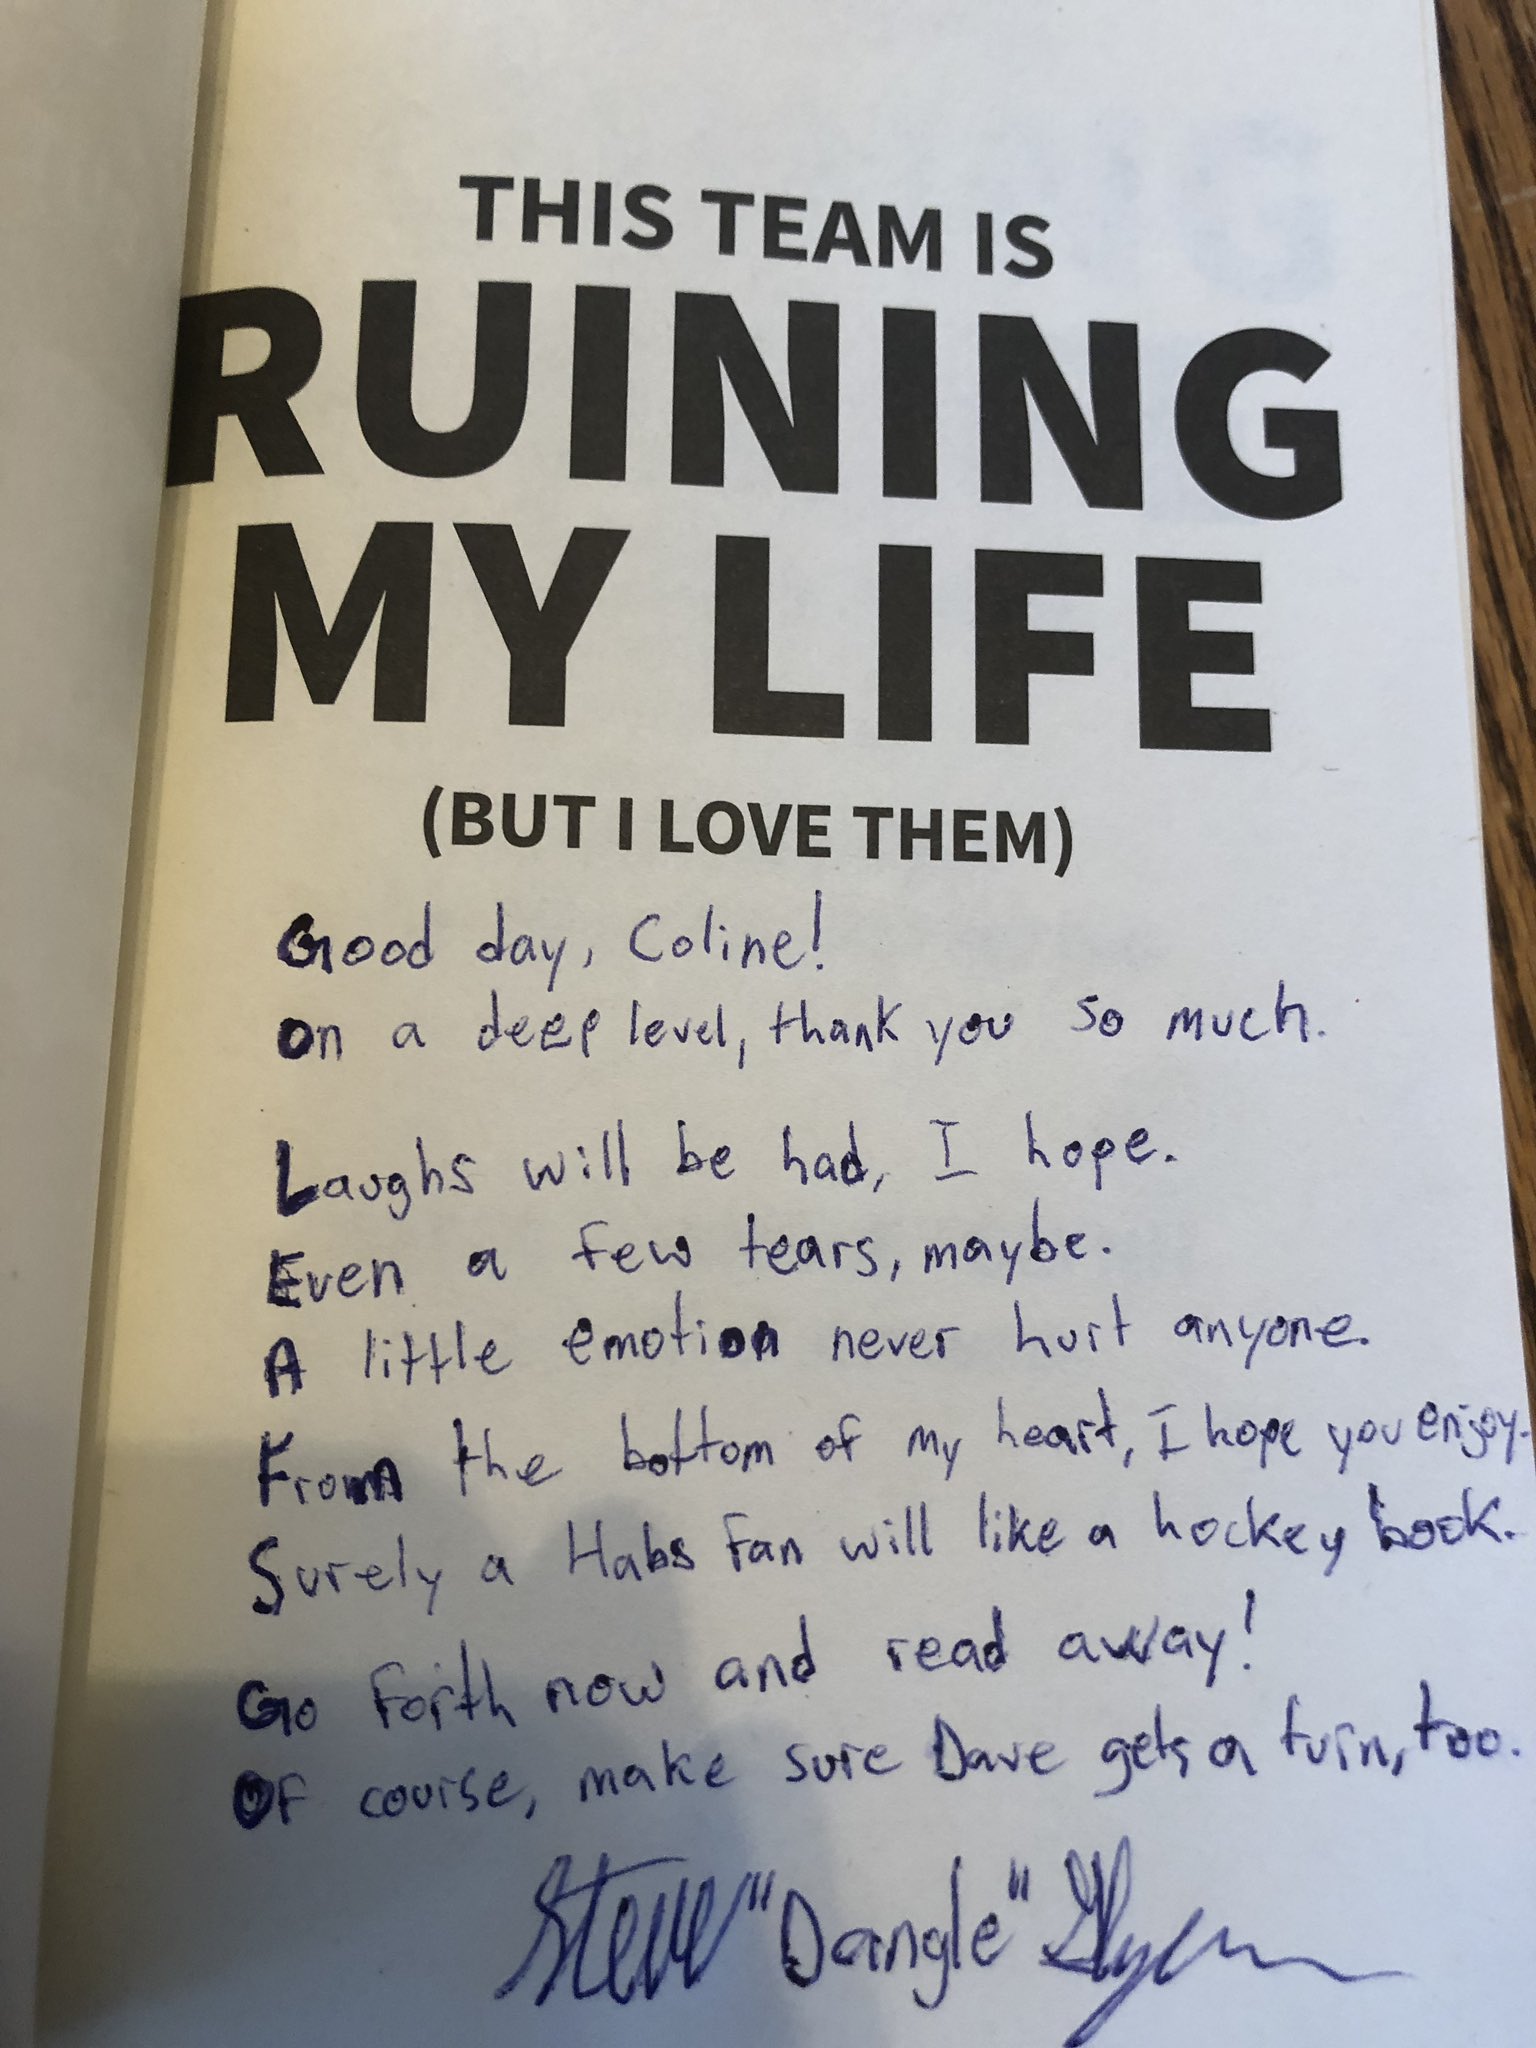 THIS TEAM IS
RUINING
MY LIFE
(BUT I LOVE THEM)
Good day, Coline!
On a deep level, thank you so much.
Laughs will be had, I hope.
Even a few tears, maybe.
A little emotion never hurt anyone.
From the bottom of my heart, I hope you enjoy.
Surely a Habs fan will like a hockey book.
Go forth now and read away!
Of course, make sure Dave gets a turn, too.
Steve "Dangle" Glynn